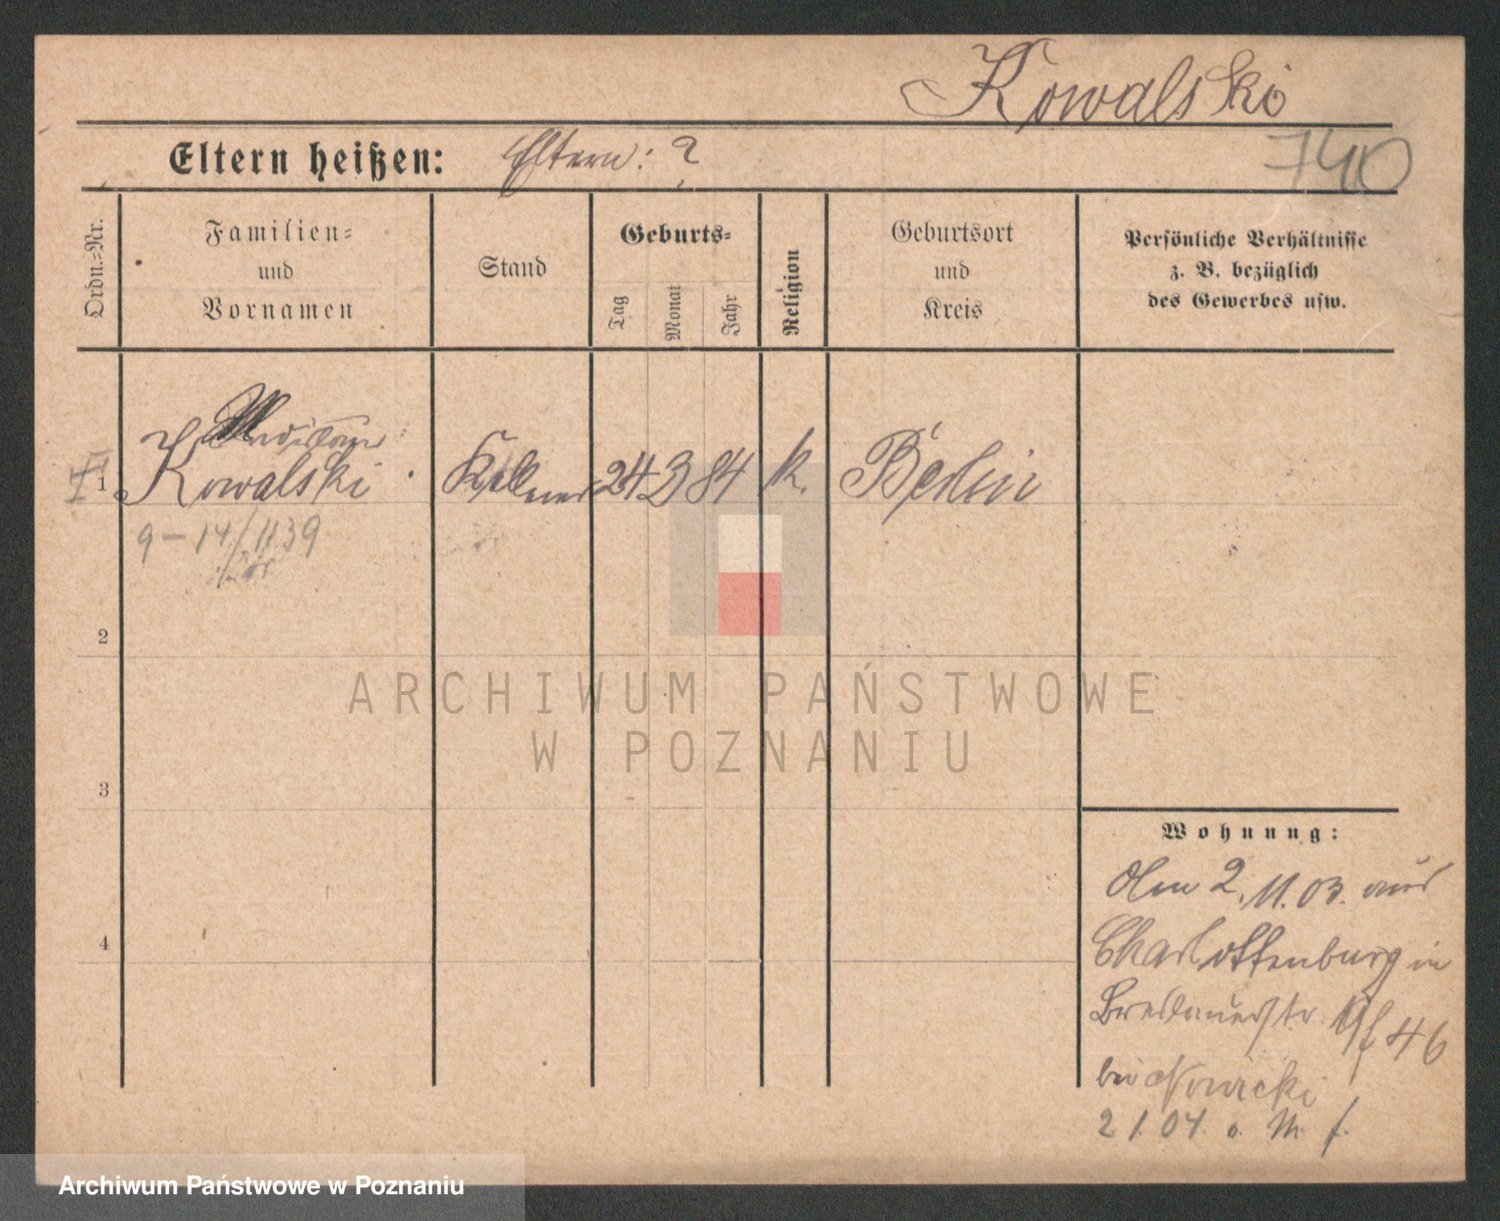 Kowalski
740
Eltern heißen: Eltern: ?
Ordn.-Nr.
Familien-
und
Vornamen
Stand
Geburts-
Tag
Monat
Jahr
Religion
Geburtsort
und
Kreis
Persönliche Verhältnisse
z. B. bezüglich
des Gewerbes usw.
1 Kowalski Kellner 24 3 84 k. Berlin
9-14/1139
2
3
4
Wohnung:
Am 2.11.03. aus
Charlottenburg in
Breslauerstr. 46
bei Nowicki
2 1. 04. o. M. f.
ARCHIWUM PAŃSTWOWE
W POZNANIU
Archiwum Państwowe w Poznaniu